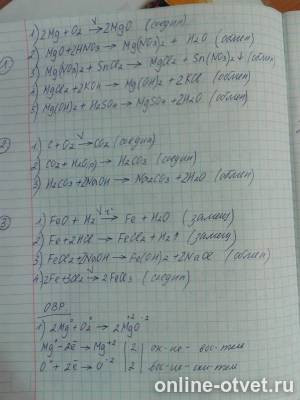 ①
1) 2Mg + O2 → 2MgO (соедин)
2) MgO + 2HNO3 → Mg(NO3)2 + H2O (обмен)
3) Mg(NO3)2 + SnCl2 → MgCl2 + Sn(NO3)2↓ (обмен)
4) MgCl2 + 2KOH → Mg(OH)2 + 2KCl (обмен)
5) Mg(OH)2 + H2SO4 → MgSO4 + 2H2O (обмен)
②
1) C + O2 → CO2 (соедин)
2) CO2 + H2O(p) → H2CO3 (соедин)
3) H2CO3 + 2NaOH → Na2CO3 + 2H2O (обмен)
③
1) FeO + H2 → Fe + H2O (замещ)
2) Fe + 2HCl → FeCl2 + H2↑ (замещ)
3) FeCl2 + 2NaOH → Fe(OH)2 + 2NaCl (обмен)
4) 2Fe + 3Cl2 → 2FeCl3 (соедин)
ОВР
1) 2Mg⁰ + O2⁰ → 2Mg⁺²O⁻²
Mg⁰ - 2e → Mg⁺² |2|
O⁰ + 2e → O⁻² |2|
online-otvet.ru